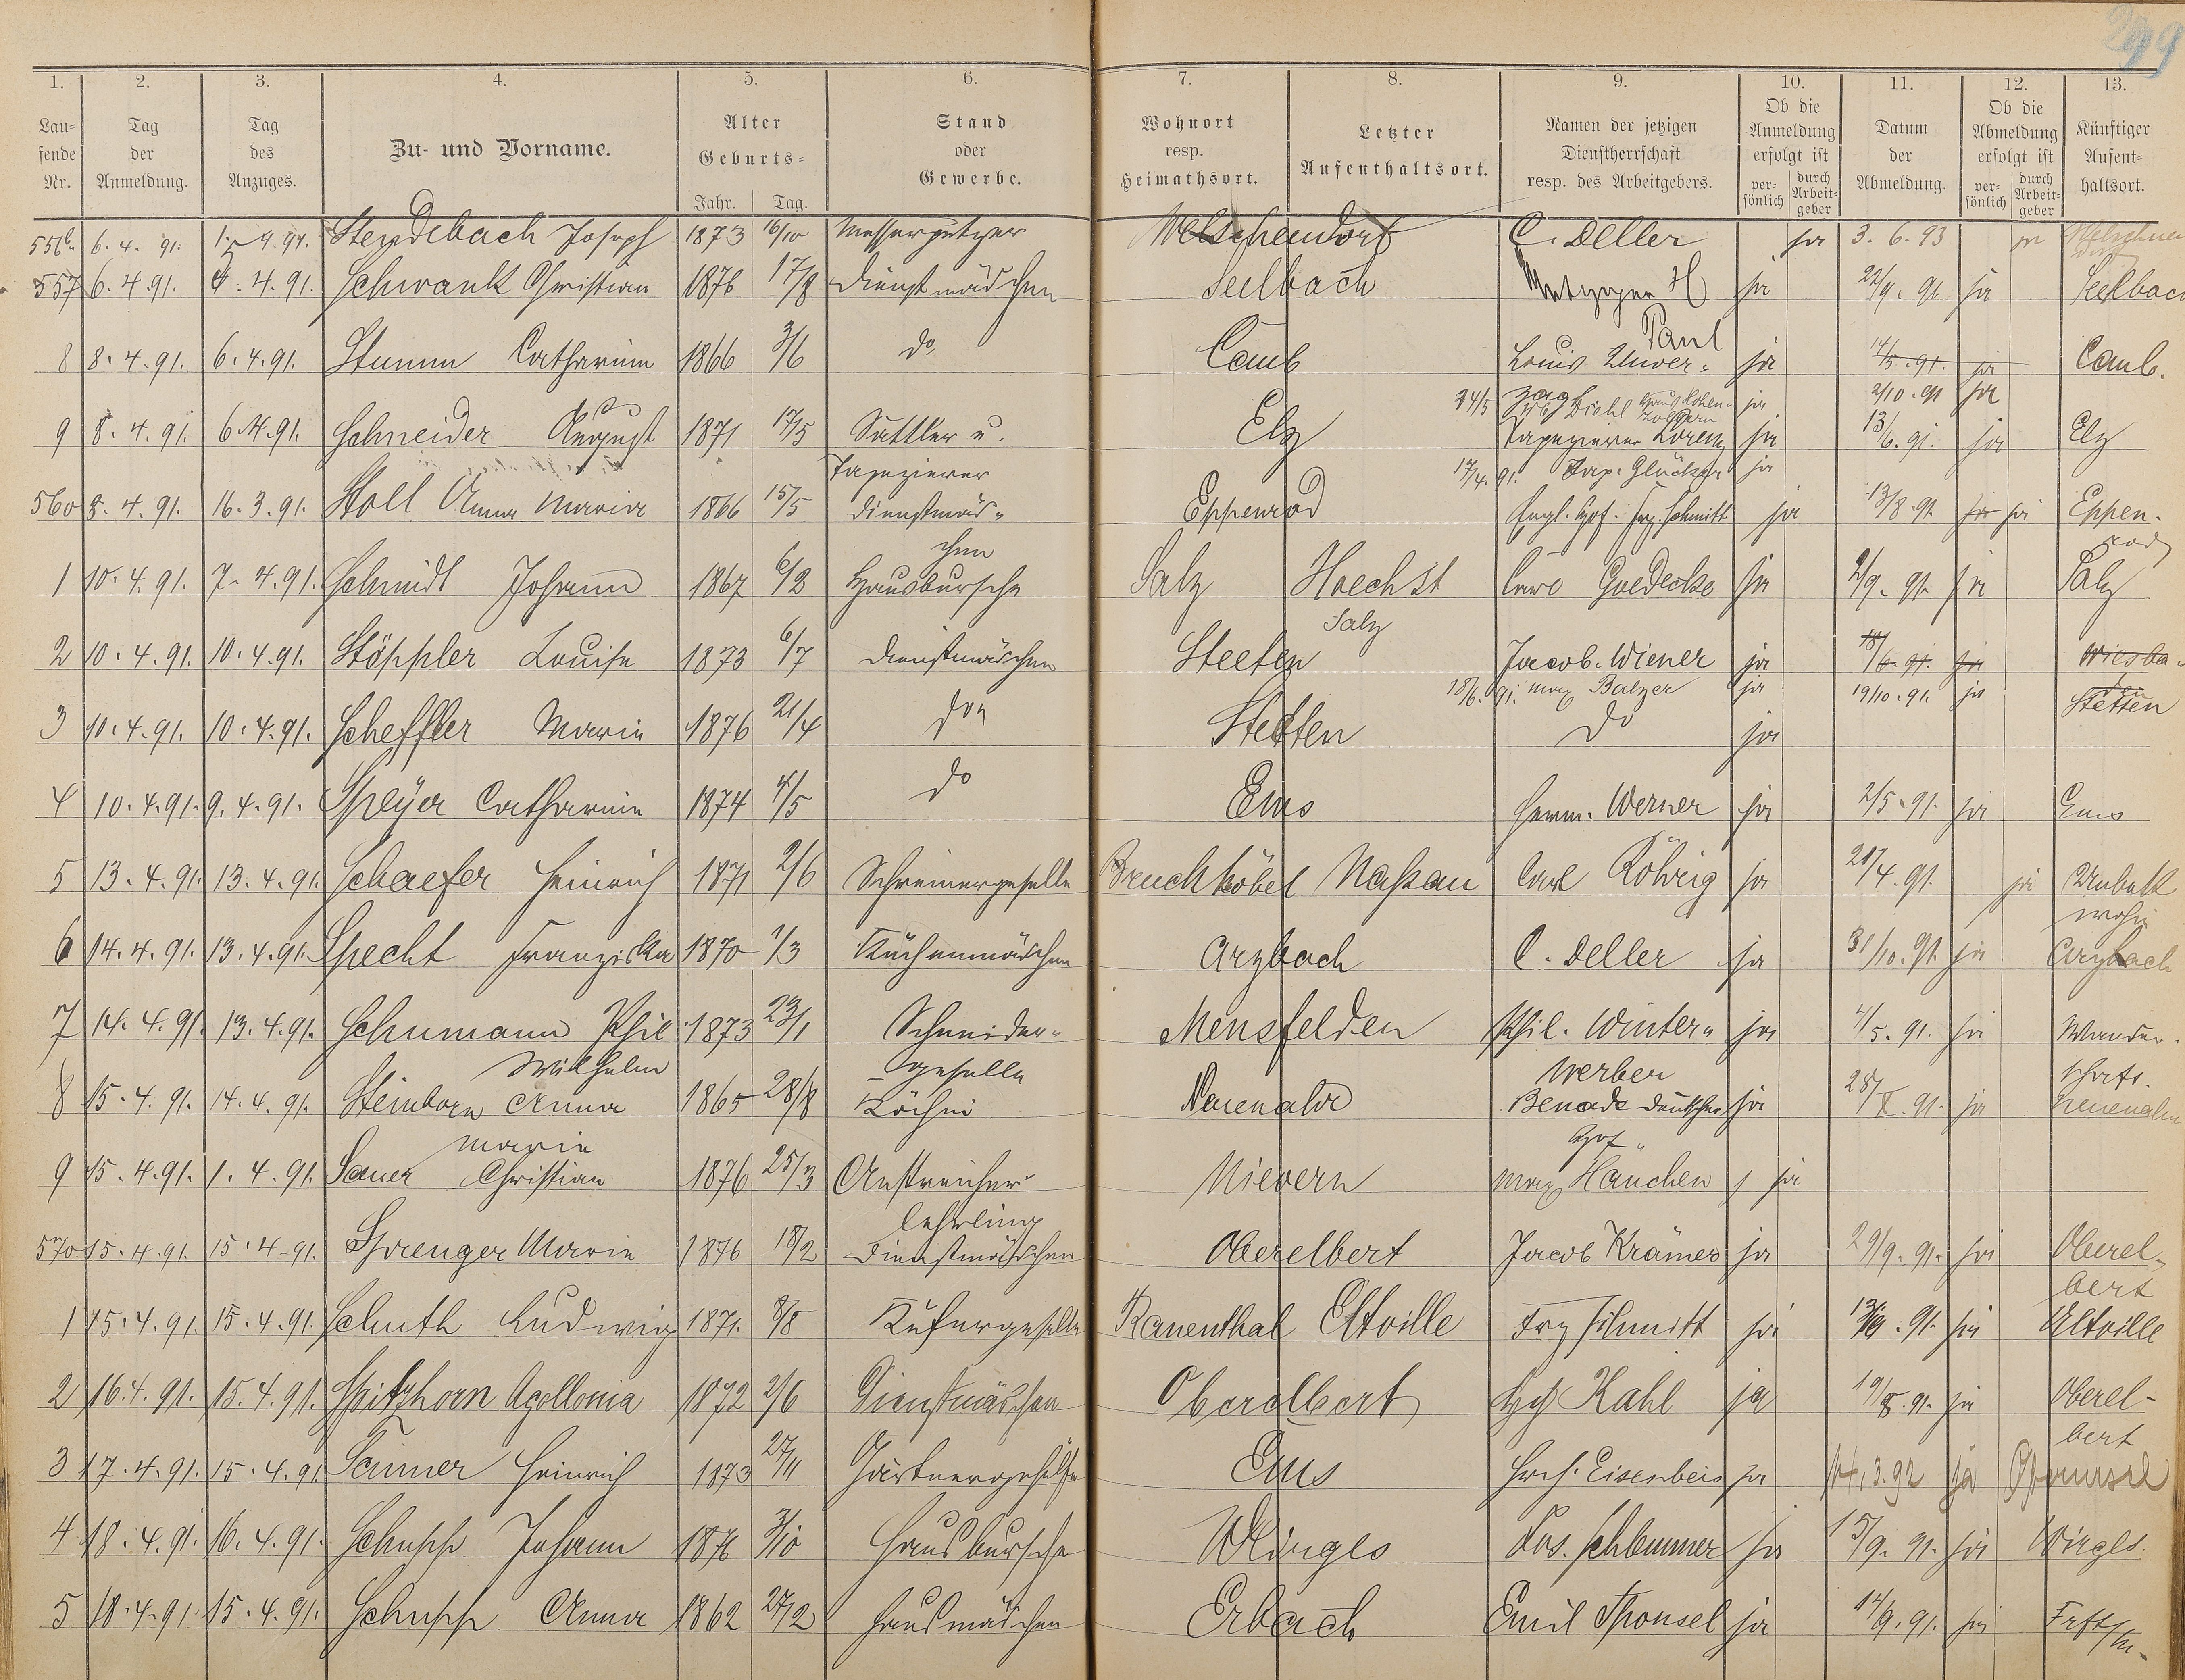 299
1. 2. 3. 4. 5. 6. 7. 8. 9. 10. 11. 12. 13.
Laufende Nr. Tag der Anmeldung. Tag des Anzuges. Zu- und Vorname. Alter Geburts- Jahr. Tag. Stand oder Gewerbe. Wohnort resp. Heimathsort. Letzter Aufenthaltsort. Namen der jetzigen Dienstherrschaft resp. des Arbeitgebers. Ob die Anmeldung erfolgt ist persönlich durch Arbeitgeber Datum der Abmeldung. Ob die Abmeldung erfolgt ist persönlich durch Arbeitgeber Künftiger Aufenthaltsort.
556a 6.4.91. Joseph 1873 16/10 Messerputzer Welschendorf C. Deller ja 3.6.93 ja
557 6.4.91. 4.4.91. Schwank Christian 1876 17/8 Dienstmädchen Seelbach Metzger H ja 22/9.91 ja Seelbach
Paul
8 8.4.91. 6.4.91. Stumm Catharina 1866 3/6 do. Caub Louis Unver- ja 14/5.91. ja Caub.
24/5 zagt Diehl Hohenzollern ja 2/10.91 ja
9 8.4.91. 6.4.91. Schneider August 1871 17/5 Sattler u. Elz Tapezierer Lorenz ja 13/6.91. ja Elz
Tapezierer 17/4.91. Tap. Glückner ja
560 8.4.91. 16.3.91. Stoll Anna Maria 1866 15/5 Dienstmäd- Eppenrod Engl. Hof. Frz. Schmitt ja 13/8.91 ja ja Eppen-
chen rod
1 10.4.91. 7.4.91. Schmidt Johann 1867 6/2 Hausbursche Salz Hoechst Carl Goedecke ja 2/9.91. ja Salz
Salz
2 10.4.91. 10.4.91. Stöppler Louise 1873 6/7 Dienstmädchen Steeten Jacob Wiener ja 18/6.91. ja Wiesba-
den
18/6.91. Max Balzer ja 19/10.91. ja Stetten
3 10.4.91. 10.4.91. Scheffler Maria 1876 21/4 do Stetten Do ja
4 10.4.91. 9.4.91. Speyer Catharina 1874 4/5 do Ems Herm. Werner ja 2/5.91. ja Ems
5 13.4.91. 13.4.91. Schaefer Heinrich 1871 2/6 Schreinergeselle Bruchköbel Naßau Carl Röhrig ja 28/4.91. ja Unbekt
wohin
6 14.4.91. 13.4.91. Specht Franziska 1870 1/3 Küchenmädchen Arzbach C. Deller ja 31/10.91 ja Arzbach
7 14.4.91. 13.4.91. Schumann Phil 1873 23/1 Schneider- Mensfelden Phil. Winter- ja 4/5.91. ja Wander-
Wilhelm geselle werber schaft.
8 15.4.91. 14.4.91. Steinborn Anna 1865 28/8 Köchin Neuenahr Benade Deutscher ja 28/X.91. ja Neuenahr
Maria Hof
9 15.4.91. 1.4.91. Sauer Christian 1876 25/3 Anstreicher- Nievern Max Hänchen ja
lehrling
570 15.4.91. 15.4.91. Sprenger Maria 1876 18/2 Dienstmädchen Oberelbert Jacob Krämer ja 29/9.91. ja Oberel-
bert
1 15.4.91. 15.4.91. Schuth Ludwig 1871. 8/8 Küfergeselle Rauenthal Eltville Frz Schmitt ja 13/9.91. ja Eltville
2 16.4.91. 15.4.91. Spitzhorn Apollonia 1872 2/6 Dienstmädchen Oberelbert Kahl ja 19/8.91. ja Oberel-
bert
3 17.4.91. 15.4.91 Heinrich 1873 27/11 Gärtnergehülfe Ems Hrch. Eisenbeis ja 14.3.92 ja Oberursel
4 18.4.91. 16.4.91. Schupp Johann 1876 3/10 Hausbursche Wirges Jos. Schlemmer ja 15/9.91. ja Wirges.
5 18.4.91. 15.4.91. Schupp Anna 1862 27/2 Hausmädchen Erbach Emil Sponsel ja 14/9.91. ja Frft/M.